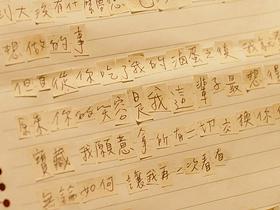 到大後有什麼
想做的事
但是從你吃了我的滷蛋之後 我
原來你的笑容是我這輩子最想
寶藏 我願意拿所有一切交換你
無論如何 讓我再一次看看